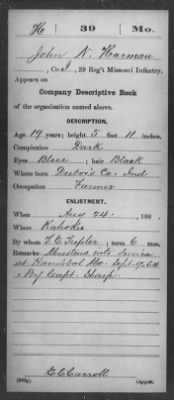 H | 39 | Mo.
John N. Harmon
Co. I, 39 Reg't Missouri Infantry.
Appears on
Company Descriptive Book
of the organization named above.
DESCRIPTION.
Age 19 years; height 5 feet 11 inches.
Complexion Dark
Eyes Blue; hair Black
Where born Dubois Co. Ind
Occupation Farmer
ENLISTMENT.
When Aug 24, 186
Where Kahoka
By whom; term 6 mo.
Remarks: Mustered into Service
at Hannibal Mo. Sept. 9, 64
By Capt. Sharp.
E C Carroll
Copyist.